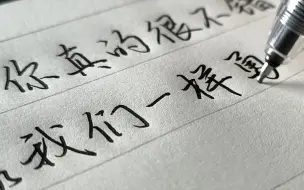 你真的很不错
我们一样